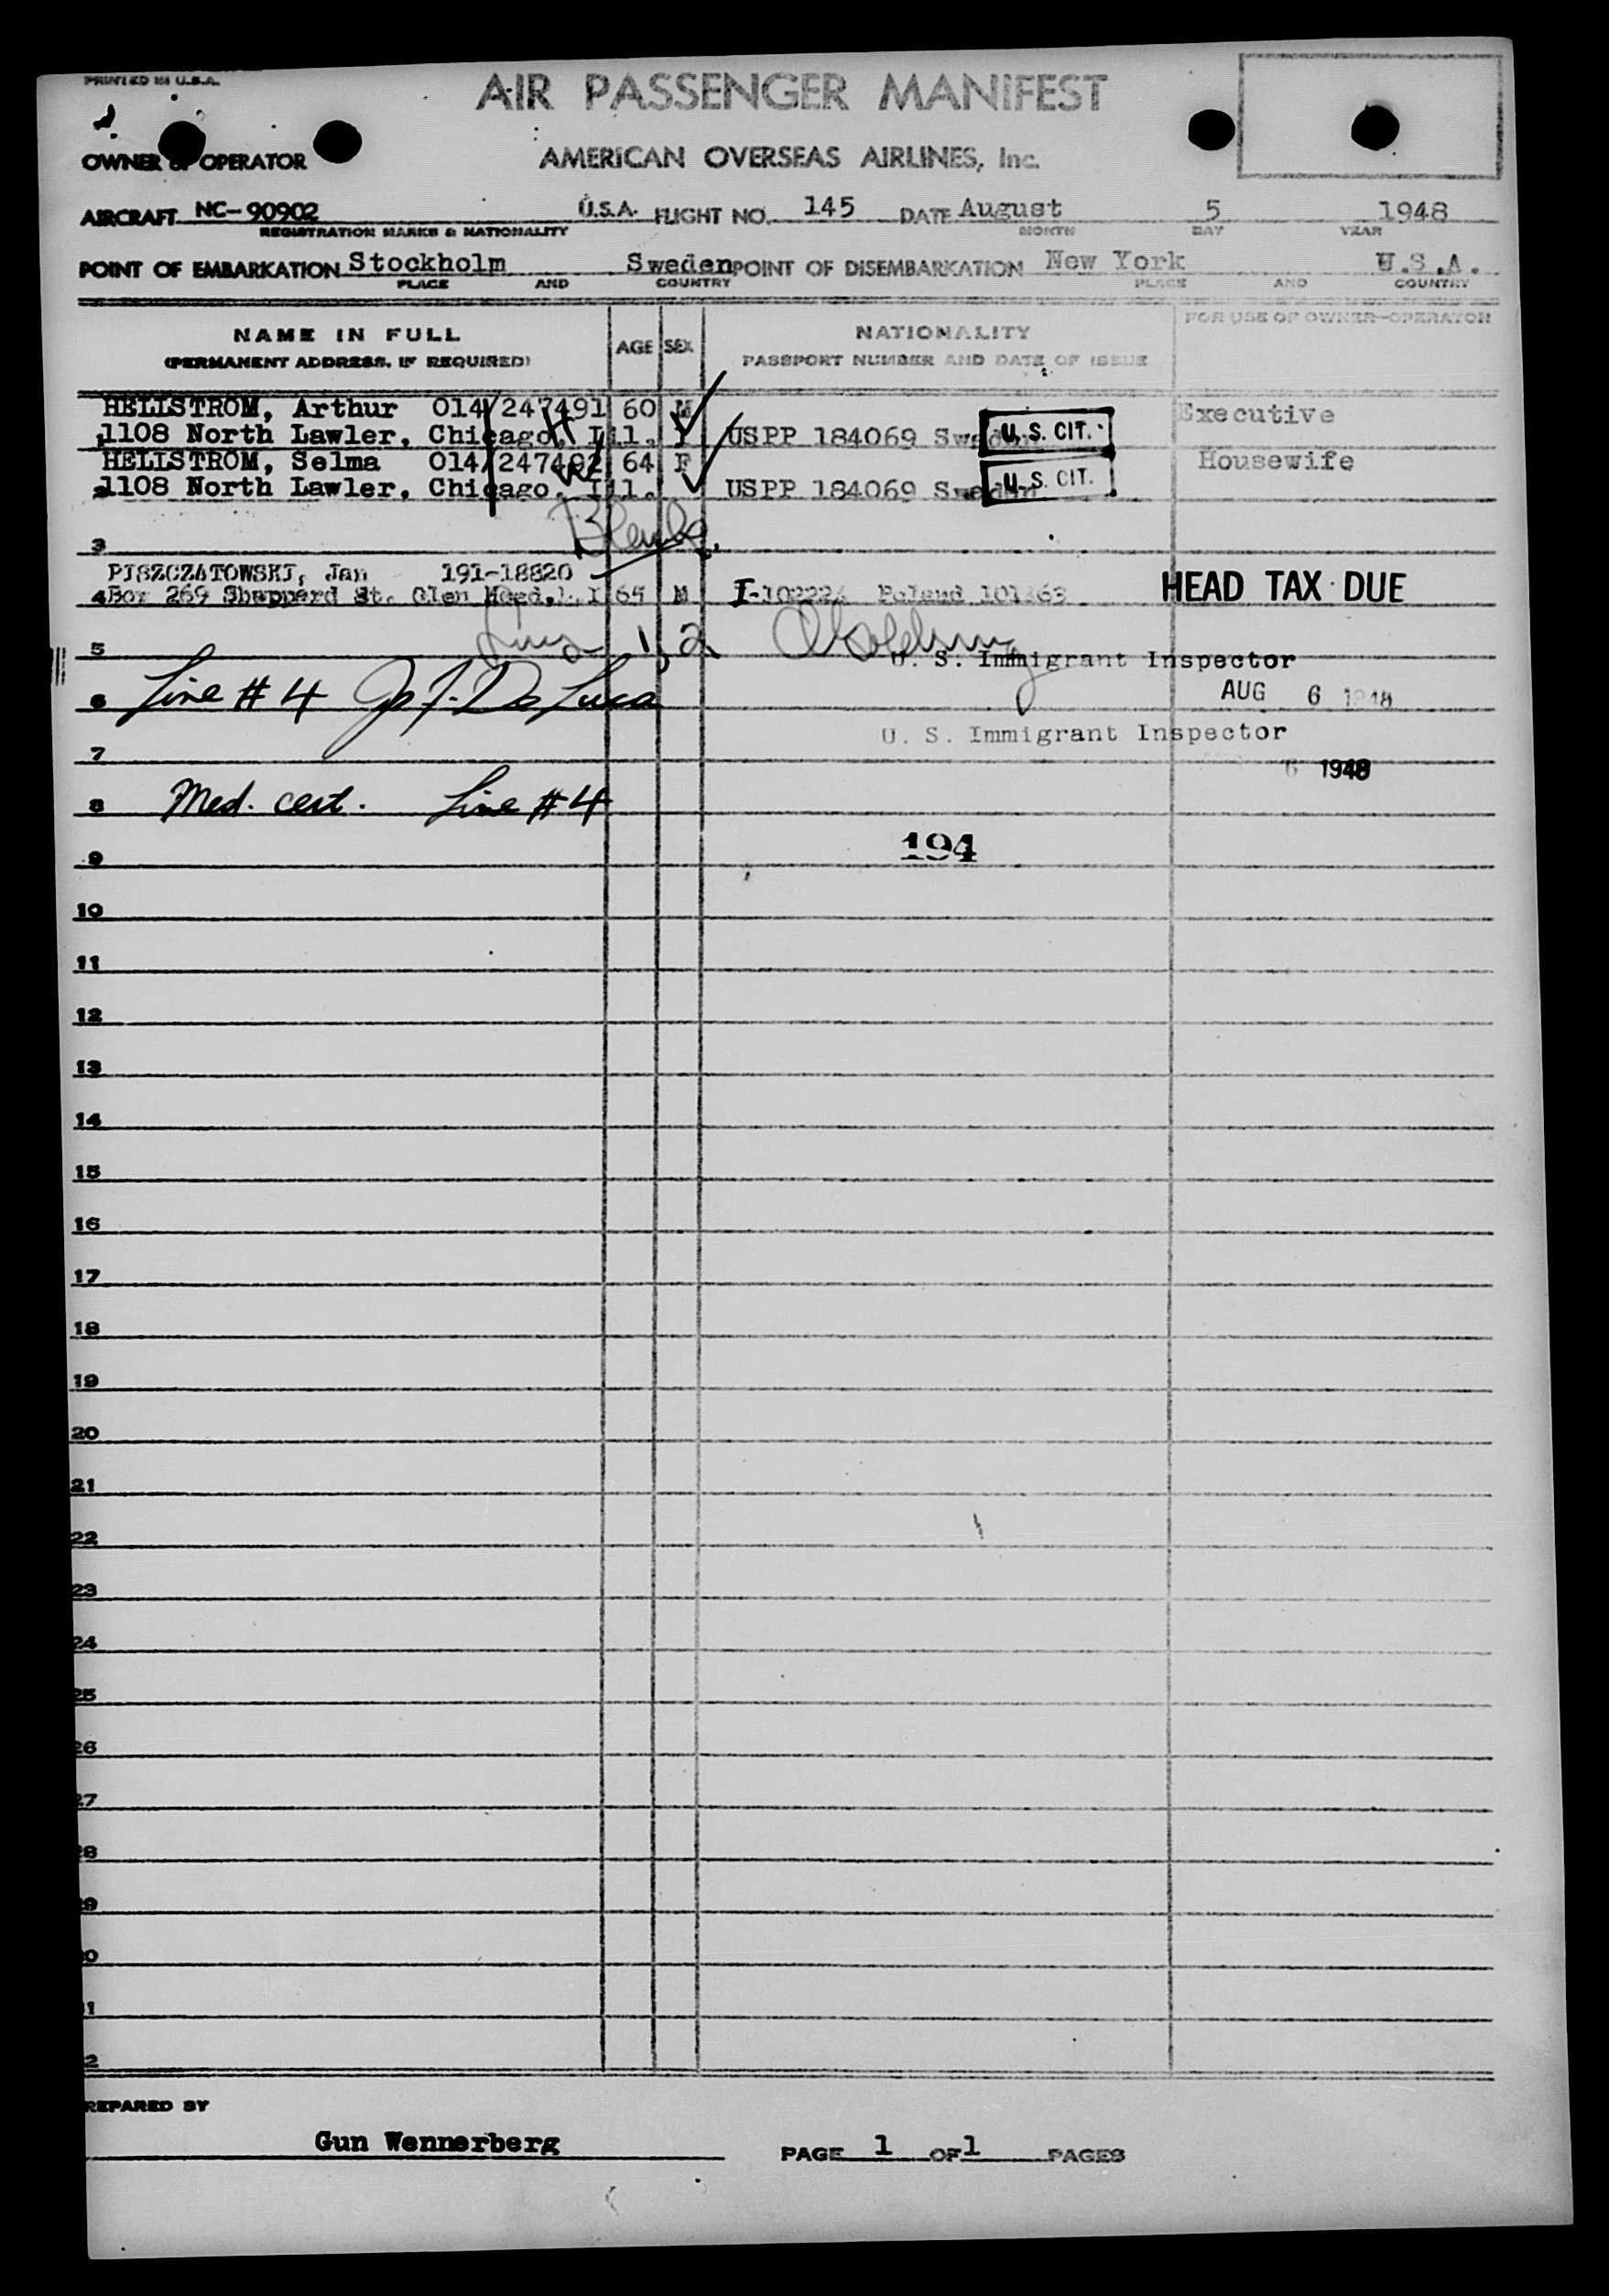 PRINTED IN U.S.A.
AIR PASSENGER MANIFEST
OWNER or OPERATOR AMERICAN OVERSEAS AIRLINES, Inc.
AIRCRAFT NC-90902 U.S.A. FLIGHT NO. 145 DATE August 5 1948
REGISTRATION MARKS & NATIONALITY MONTH DAY YEAR
POINT OF EMBARKATION Stockholm Sweden POINT OF DISEMBARKATION New York U.S.A.
PLACE AND COUNTRY PLACE AND COUNTRY
NAME IN FULL AGE SEX NATIONALITY FOR USE OF OWNER-OPERATOR
(PERMANENT ADDRESS, IF REQUIRED) PASSPORT NUMBER AND DATE OF ISSUE
HELLSTROM, Arthur 014/247491 60 M Executive
1108 North Lawler, Chicago, Ill. USPP 184069 Sweden U.S. CIT.
HELLSTROM, Selma 014/247492 64 F Housewife
1108 North Lawler, Chicago, Ill. USPP 184069 Sweden U.S. CIT.
3
PISZCZATOWSKI, Jan 191-18820
4 Box 269 Sheppard St. Glen Head, L.I 65 M Poland HEAD TAX DUE
5 1, 2,
U. S. Immigrant Inspector
6 Line # 4 De Luca AUG 6 1948
7 U. S. Immigrant Inspector
6 1948
8 Med. cert. Line # 4
194
9
10
11
12
13
14
15
16
17
18
19
20
21
22
23
24
25
26
27
28
29
0
1
2
REPARED BY
Gun Wennerberg PAGE 1 OF 1 PAGES